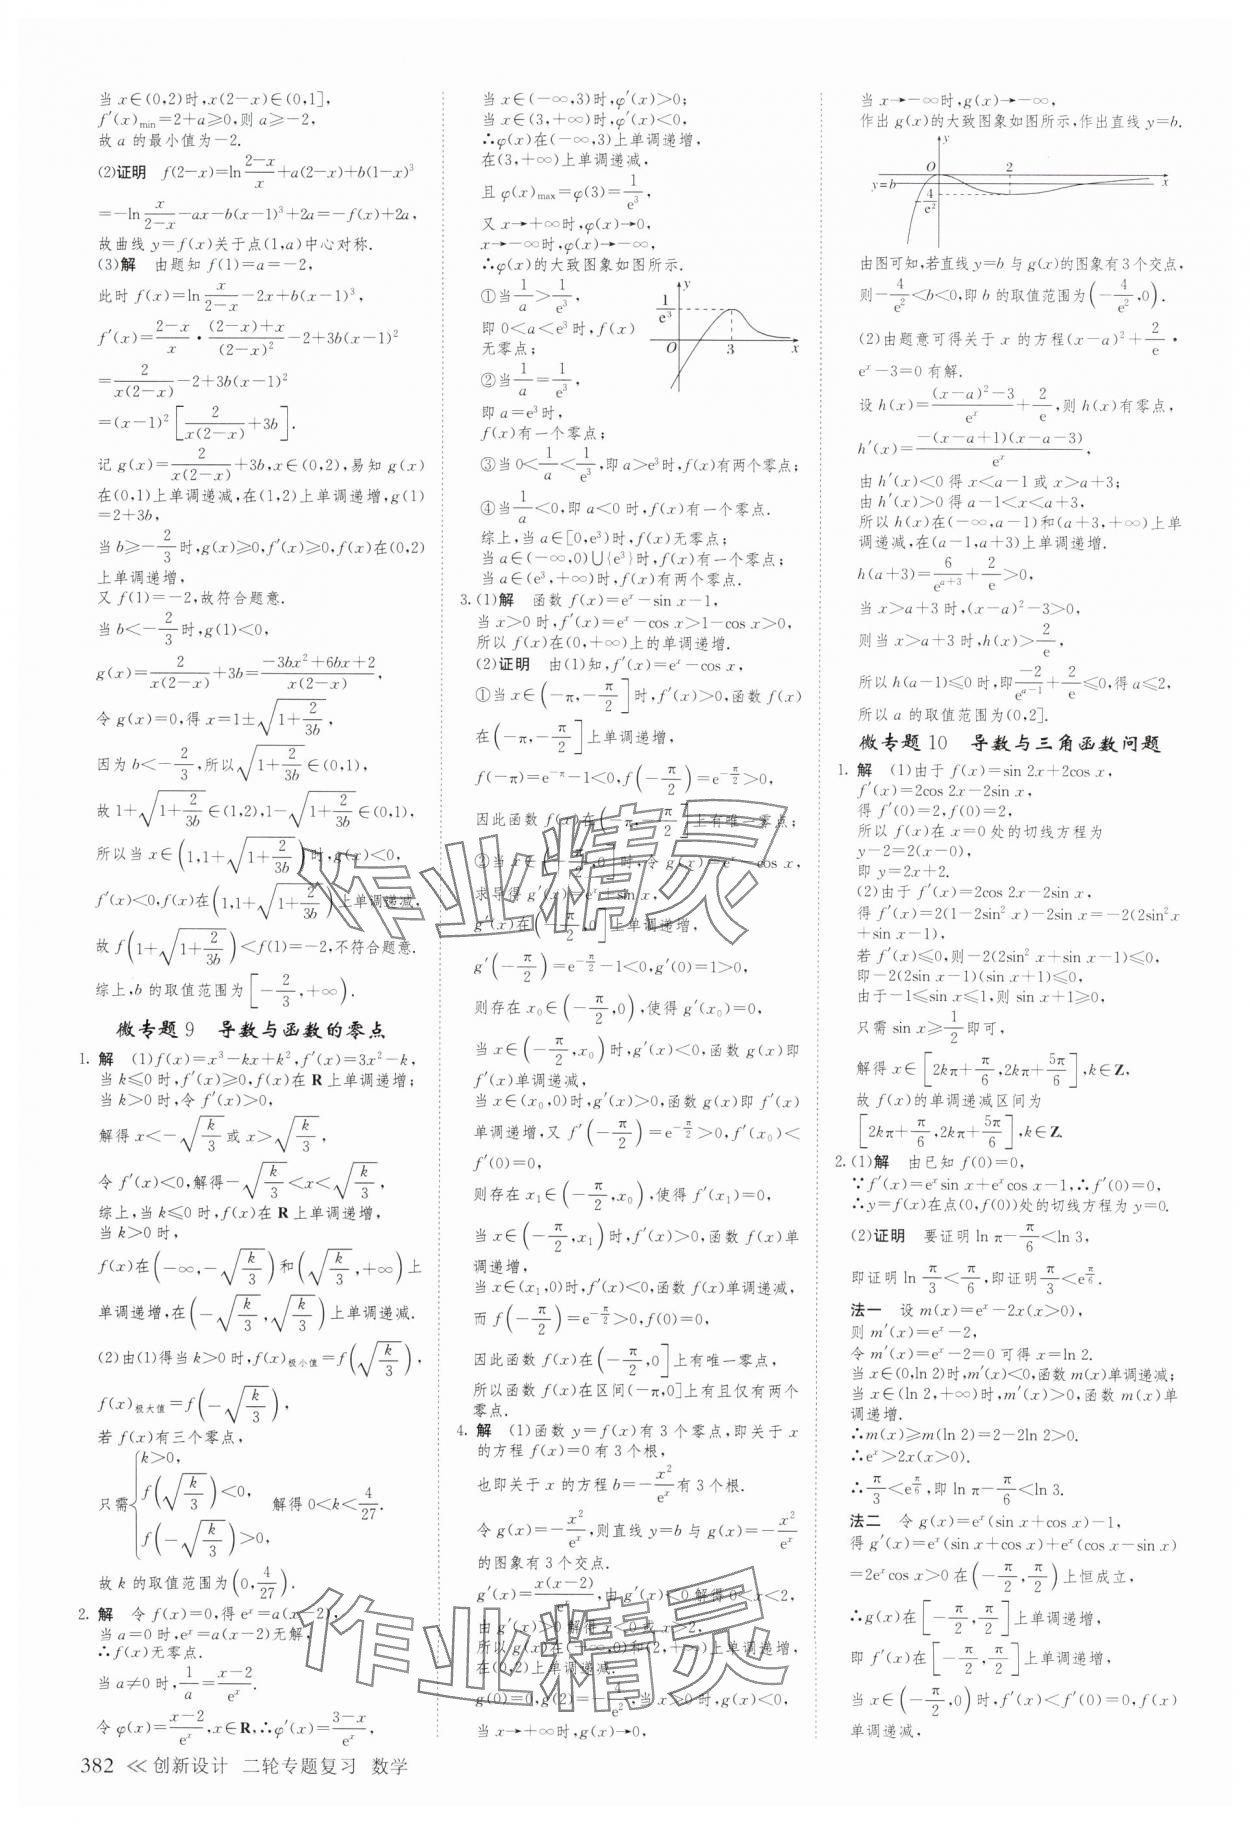 当 x∈(0,2)时,x(2−x)∈(0,1],
f′(x)min=2+a≥0,则 a≥−2,
故 a 的最小值为−2.
(2)证明 f(2−x)=ln\frac{2−x}{x}+a(2−x)+b(1−x)³
=−ln\frac{x}{2−x}−ax−b(x−1)³+2a=−f(x)+2a,
故曲线 y=f(x)关于点(1,a)中心对称.
(3)解 由题知 f(1)=a=−2,
此时 f(x)=ln\frac{x}{2−x}−2x+b(x−1)³,
f′(x)=\frac{2−x}{x}·\frac{(2−x)+x}{(2−x)²}−2+3b(x−1)²
=\frac{2}{x(2−x)}−2+3b(x−1)²
=(x−1)²[\frac{2}{x(2−x)}+3b].
记 g(x)=\frac{2}{x(2−x)}+3b,x∈(0,2),易知 g(x)
在(0,1)上单调递减,在(1,2)上单调递增,g(1)
=2+3b,
当 b≥−\frac{2}{3}时,g(x)≥0,f′(x)≥0,f(x)在(0,2)
上单调递增,
又 f(1)=−2,故符合题意.
当 b<−\frac{2}{3}时,g(1)<0,
g(x)=\frac{2}{x(2−x)}+3b=\frac{−3bx²+6bx+2}{x(2−x)},
令 g(x)=0,得 x=1±\sqrt{1+\frac{2}{3b}},
因为 b<−\frac{2}{3},所以\sqrt{1+\frac{2}{3b}}∈(0,1),
故 1+\sqrt{1+\frac{2}{3b}}∈(1,2),1−\sqrt{1+\frac{2}{3b}}∈(0,1),
所以当 x∈(1,1+\sqrt{1+\frac{2}{3b}})时,g(x)<0,
f′(x)<0,f(x)在(1,1+\sqrt{1+\frac{2}{3b}})上单调递减,
故 f(1+\sqrt{1+\frac{2}{3b}})<f(1)=−2,不符合题意.
综上,b 的取值范围为[−\frac{2}{3},+∞).
微专题 9 导数与函数的零点
1. 解 (1)f(x)=x³−kx+k²,f′(x)=3x²−k,
当 k≤0 时,f′(x)≥0,f(x)在 R 上单调递增;
当 k>0 时,令 f′(x)>0,
解得 x<−\sqrt{\frac{k}{3}}或 x>\sqrt{\frac{k}{3}},
令 f′(x)<0,解得−\sqrt{\frac{k}{3}}<x<\sqrt{\frac{k}{3}}
综上,当 k≤0 时,f(x)在 R 上单调递增,
当 k>0 时,
f(x)在(−∞,−\sqrt{\frac{k}{3}})和(\sqrt{\frac{k}{3}},+∞)上
单调递增,在(−\sqrt{\frac{k}{3}},\sqrt{\frac{k}{3}})上单调递减.
(2)由(1)得当 k>0 时,f(x)极小值=f(\sqrt{\frac{k}{3}}),
f(x)极大值=f(−\sqrt{\frac{k}{3}}),
若 f(x)有三个零点,
只需{k>0, f(\sqrt{\frac{k}{3}})<0, f(−\sqrt{\frac{k}{3}})>0, 解得 0<k<\frac{4}{27}.
故 k 的取值范围为(0,\frac{4}{27}).
2. 解 令 f(x)=0,得 eˣ=a(x−2),
当 a=0 时,eˣ=a(x−2)无解,
∴f(x)无零点.
当 a≠0 时,\frac{1}{a}=\frac{x−2}{eˣ}.
令 φ(x)=\frac{x−2}{eˣ},x∈R,∴φ′(x)=\frac{3−x}{eˣ},
当 x∈(−∞,3)时,φ′(x)>0;
当 x∈(3,+∞)时,φ′(x)<0,
∴φ(x)在(−∞,3)上单调递增,
在(3,+∞)上单调递减,
且 φ(x)max=φ(3)=\frac{1}{e³},
又 x→+∞时,φ(x)→0,
x→−∞时,φ(x)→−∞,
∴φ(x)的大致图象如图所示.
①当\frac{1}{a}>\frac{1}{e³},
即 0<a<e³时,f(x)
无零点;
②当\frac{1}{a}=\frac{1}{e³},
即 a=e³时,
f(x)有一个零点;
y
\frac{1}{e³}
O 3 x
③当 0<\frac{1}{a}<\frac{1}{e³},即 a>e³时,f(x)有两个零点;
④当\frac{1}{a}<0,即 a<0 时,f(x)有一个零点.
综上,当 a∈[0,e³)时,f(x)无零点;
当 a∈(−∞,0)∪{e³}时,f(x)有一个零点;
当 a∈(e³,+∞)时,f(x)有两个零点.
3. (1)解 函数 f(x)=eˣ−sin x−1,
当 x>0 时,f′(x)=eˣ−cos x>1−cos x>0,
所以 f(x)在(0,+∞)上的单调递增.
(2)证明 由(1)知,f′(x)=eˣ−cos x,
①当 x∈(−π,−\frac{π}{2}]时,f′(x)>0,函数 f(x)
在(−π,−\frac{π}{2}]上单调递增,
f(−π)=e^{−π}−1<0,f(−\frac{π}{2})=e^{−\frac{π}{2}}>0,
因此函数 f(x)在(−π,−\frac{π}{2}]上有唯一零点;
②当 x∈(−\frac{π}{2},0]时,令 g(x)=eˣ−cos x,
求导得 g′(x)=eˣ+sin x,
g′(x)在(−\frac{π}{2},0]上单调递增,
g′(−\frac{π}{2})=e^{−\frac{π}{2}}−1<0,g′(0)=1>0,
则存在 x₀∈(−\frac{π}{2},0),使得 g′(x₀)=0,
当 x∈(−\frac{π}{2},x₀)时,g′(x)<0,函数 g(x)即
f′(x)单调递减,
当 x∈(x₀,0)时,g′(x)>0,函数 g(x)即 f′(x)
单调递增,又 f′(−\frac{π}{2})=e^{−\frac{π}{2}}>0,f′(x₀)<
f′(0)=0,
则存在 x₁∈(−\frac{π}{2},x₀),使得 f′(x₁)=0,
当 x∈(−\frac{π}{2},x₁)时,f′(x)>0,函数 f(x)单
调递增,
当 x∈(x₁,0)时,f′(x)<0,函数 f(x)单调递减,
而 f(−\frac{π}{2})=e^{−\frac{π}{2}}>0,f(0)=0,
因此函数 f(x)在(−\frac{π}{2},0]上有唯一零点,
所以函数 f(x)在区间(−π,0]上有且仅有两个
零点.
4. 解 (1)函数 y=f(x)有 3 个零点,即关于 x
的方程 f(x)=0 有 3 个根,
也即关于 x 的方程 b=−\frac{x²}{eˣ}有 3 个根.
令 g(x)=−\frac{x²}{eˣ},则直线 y=b 与 g(x)=−\frac{x²}{eˣ}
的图象有 3 个交点.
g′(x)=\frac{x(x−2)}{eˣ},由 g′(x)<0 解得 0<x<2,
由 g′(x)>0 解得 x<0 或 x>2.
所以 g(x)在(−∞,0)和(2,+∞)上单调递增,
在(0,2)上单调递减.
g(0)=0,g(2)=−\frac{4}{e²},当 x>0 时,g(x)<0,
当 x→+∞时,g(x)→0,
当 x→−∞时,g(x)→−∞,
作出 g(x)的大致图象如图所示,作出直线 y=b.
y
O 2 x
y=b
−\frac{4}{e²}
由图可知,若直线 y=b 与 g(x)的图象有 3 个交点,
则−\frac{4}{e²}<b<0,即 b 的取值范围为(−\frac{4}{e²},0).
(2)由题意可得关于 x 的方程(x−a)²+\frac{2}{e}·
eˣ−3=0 有解.
设 h(x)=\frac{(x−a)²−3}{eˣ}+\frac{2}{e},则 h(x)有零点,
h′(x)=\frac{−(x−a+1)(x−a−3)}{eˣ},
由 h′(x)<0 得 x<a−1 或 x>a+3;
由 h′(x)>0 得 a−1<x<a+3,
所以 h(x)在(−∞,a−1)和(a+3,+∞)上单
调递减,在(a−1,a+3)上单调递增.
h(a+3)=\frac{6}{e^{a+3}}+\frac{2}{e}>0,
当 x>a+3 时,(x−a)²−3>0,
则当 x>a+3 时,h(x)>\frac{2}{e},
所以 h(a−1)≤0 时,即\frac{−2}{e^{a−1}}+\frac{2}{e}≤0,得 a≤2,
所以 a 的取值范围为(0,2].
微专题 10 导数与三角函数问题
1. 解 (1)由于 f(x)=sin 2x+2cos x,
f′(x)=2cos 2x−2sin x,
得 f′(0)=2,f(0)=2,
所以 f(x)在 x=0 处的切线方程为
y−2=2(x−0),
即 y=2x+2.
(2)由于 f′(x)=2cos 2x−2sin x,
得 f′(x)=2(1−2sin² x)−2sin x=−2(2sin²x
+sin x−1),
若 f′(x)≤0,则−2(2sin² x+sin x−1)≤0,
即−2(2sin x−1)(sin x+1)≤0,
由于−1≤sin x≤1,则 sin x+1≥0,
只需 sin x≥\frac{1}{2}即可,
解得 x∈[2kπ+\frac{π}{6},2kπ+\frac{5π}{6}],k∈Z,
故 f(x)的单调递减区间为
[2kπ+\frac{π}{6},2kπ+\frac{5π}{6}],k∈Z.
2. (1)解 由已知 f(0)=0,
∵f′(x)=eˣsin x+eˣcos x−1,∴f′(0)=0,
∴y=f(x)在点(0,f(0))处的切线方程为 y=0.
(2)证明 要证明 ln π−\frac{π}{6}<ln 3,
即证明 ln \frac{π}{3}<\frac{π}{6},即证明\frac{π}{3}<e^{\frac{π}{6}}.
法一 设 m(x)=eˣ−2x(x>0),
则 m′(x)=eˣ−2,
令 m′(x)=eˣ−2=0 可得 x=ln 2.
当 x∈(0,ln 2)时,m′(x)<0,函数 m(x)单调递减;
当 x∈(ln 2,+∞)时,m′(x)>0,函数 m(x)单
调递增.
∴m(x)≥m(ln 2)=2−2ln 2>0.
∴eˣ>2x(x>0).
∴\frac{π}{3}<e^{\frac{π}{6}},即 ln π−\frac{π}{6}<ln 3.
法二 令 g(x)=eˣ(sin x+cos x)−1,
得 g′(x)=eˣ(sin x+cos x)+eˣ(cos x−sin x)
=2eˣcos x>0 在(−\frac{π}{2},\frac{π}{2})上恒成立,
∴g(x)在[−\frac{π}{2},\frac{π}{2}]上单调递增,
即 f′(x)在[−\frac{π}{2},\frac{π}{2}]上单调递增,
当 x∈(−\frac{π}{2},0)时,f′(x)<f′(0)=0,f(x)
单调递减,
382 ≪ 创新设计 二轮专题复习 数学
作业精灵
作业精灵